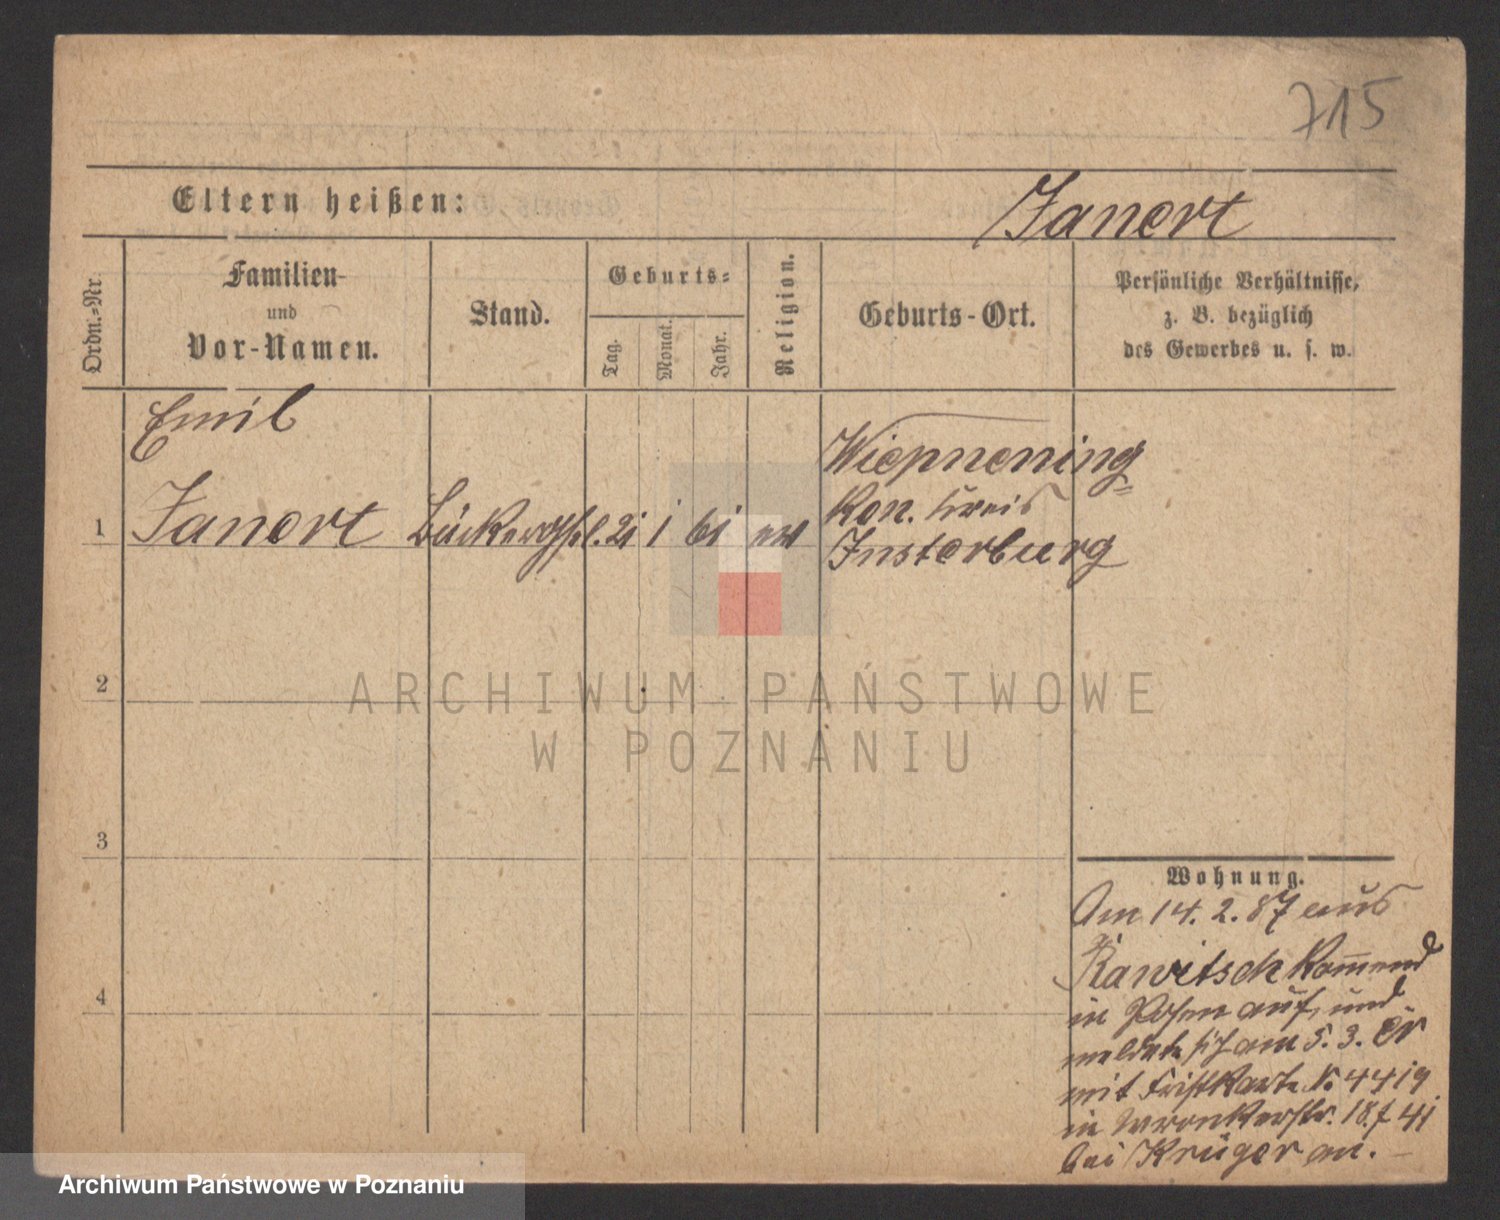 715
Eltern heißen:
Janert
Ordn.-Nr.
Familien-
und
Vor-Namen.
Stand.
Geburts-
Tag.
Monat.
Jahr.
Religion.
Geburts-Ort.
Persönliche Verhältnisse,
z. B. bezüglich
des Gewerbes u. s. w.
Emil
1 Janert Bäckergesl. 21 1 61 ev
Wiepnening
Kreis
Insterburg
2
3
4
ARCHIWUM PAŃSTWOWE
W POZNANIU
Wohnung.
Am 14. 2. 87 aus
Rawitsch kom̅end
in Posen auf, und
meldete sich am 5. 3. cr
mit Fristkarte No 4419
in Wronkerstr. 18
bei Krüger an.
Archiwum Państwowe w Poznaniu